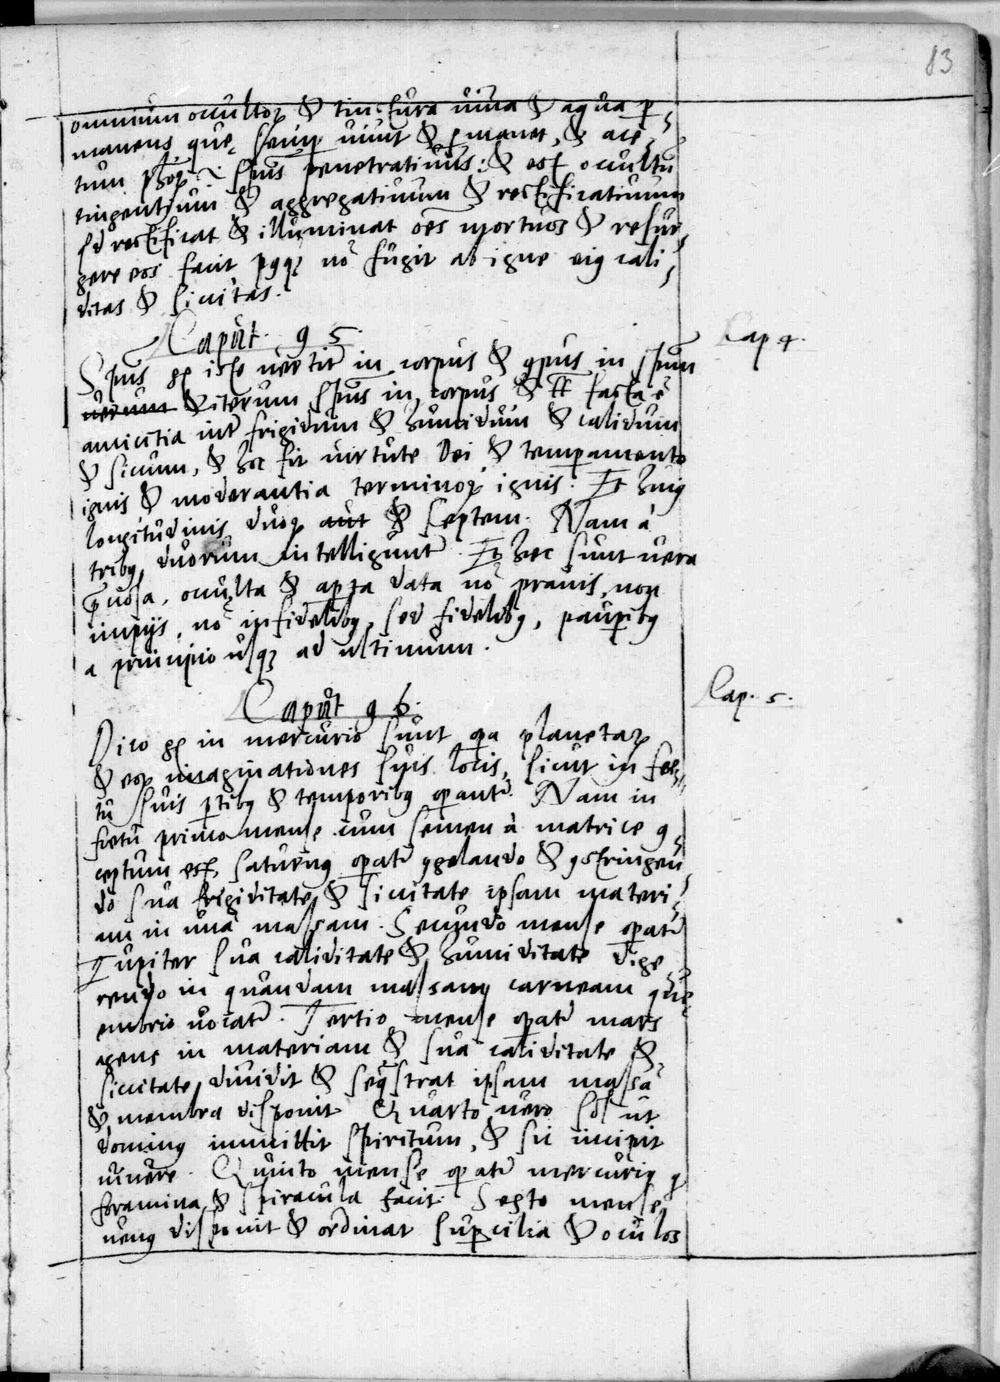 83
omnium occultoꝝ & tinctura viva & aqua ꝑ¬
manens que semꝑ vivit & ꝑmanet, & ace¬
tum phoꝝ & spūs penetrativus: & est occultū
tingentium & aggregativum & rectificativum
qd rectificat & illuminat oēs mortuos & resur¬
gere eos facit nō fugit ab igne eiꝰ cali¬
ditas & siccitas.
Caput 95.
Cap 4.
Spūs iste vertitr in corpus & ꝯpus in spum
verum & iterum spūs in corpus & tc facta ē
amicitia intr frigidum & humidum & calidum
& siccum, & hoc fit virtute Dei & temperamento
ignis & moderantia terminoꝝ ignis. Et huiꝰ
longitudinis duoꝝ aut & septem. Nam à
tribꝰ duorum intelliguntr. Et hec sunt vera
occulta & aperta data nō pravis, non
impijs, nō infidelibꝰ, sed fidelibꝰ, pauperibꝰ
a principio usqꝫ ad ultimum.
Caput 96.
Cap. 5.
Dico in mercurio sunt oꝑa planetaꝝ
& eoꝝ imaginationes suis locis, sicut in foe¬
tu suis ꝑtibꝰ & temporibꝰ oꝑantr. Nam in
foetu primo mense cum semen à matrice ꝯ¬
ceptum est, saturnꝰ oꝑatr ꝯgelando & ꝯstringen¬
do sua frigiditate & siccitate ipsam materi¬
am in unā massam. Secundo mense oꝑatr
Iupiter sua caliditate & humiditate dige¬
rendo in quandam massam carneam que
embrio vocatr. Tertio mense oꝑatr mars
agens in materiam & sua caliditate &
siccitate, dividit & seqstrat ipsam massā
& membra disponit Quarto vero sol ut
dominꝰ immittit spiritum, & sic incipit
vivere. Quinto mense oꝑatr mercuriꝰ ꝗ
foramina & spiracula facit. Sexto mense
venꝰ disponit & ordinat suꝑcilia & oculos